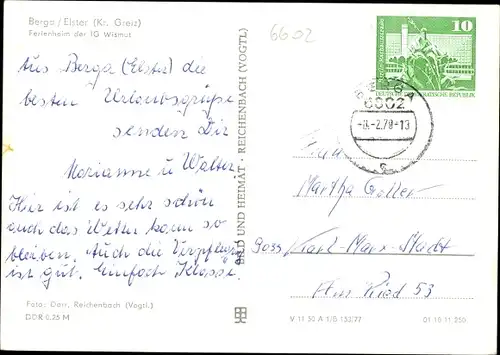 Berga / Elster (Kr. Greiz)
Ferienheim der IG Wismut
6602
Aus Berga (Elster) die
besten Urlaubsgrüße
senden Dir
Marianne u Walter.
Hier ist es sehr schön
auch das Wetter kann so
bleiben. Auch die Verpflegung
ist gut. Einfach Klasse.
Foto: Darr, Reichenbach (Vogtl.)
DDR 0,25 M
BILD UND HEIMAT · REICHENBACH (VOGTL)
10
DEUTSCHE DEMOKRATISCHE REPUBLIK
BERGA
6602
-8.-2.78-13
c
Frau
Martha
9033 Karl-Marx-Stadt
53
V 11 50 A 1/B 153/77
01 16 11 250